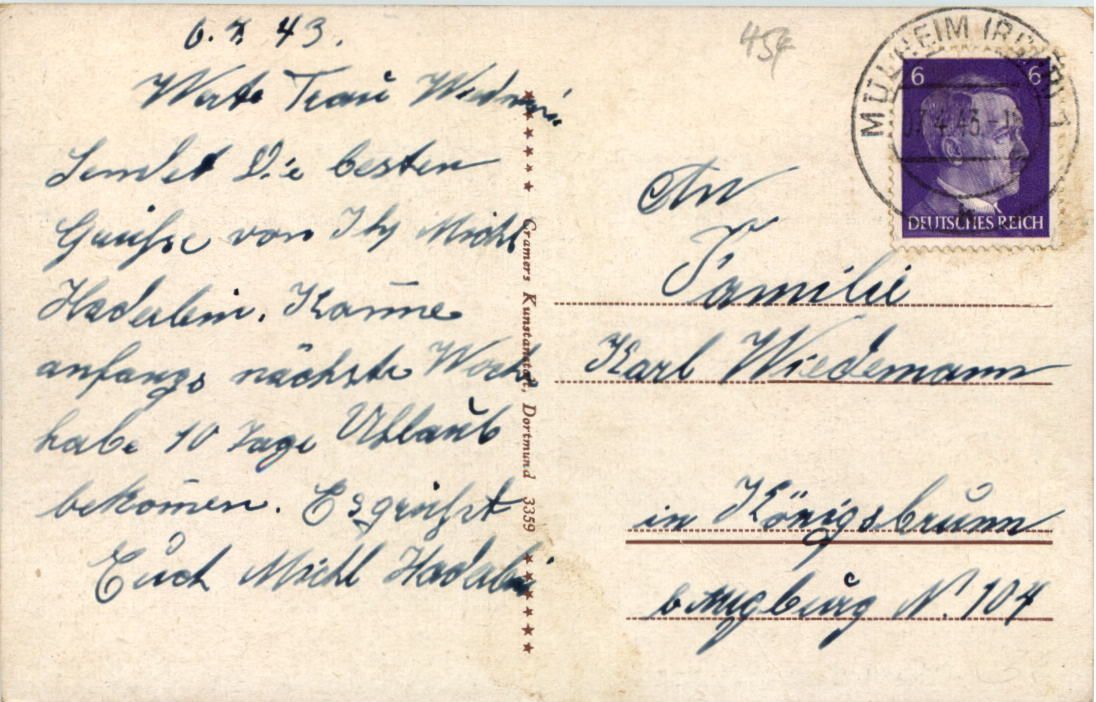 6. 4. 43.
Werte Frau Wiedm
Sendet Die besten
Grüße von Ihr Michl
Haderlein. Komme
anfangs nächste Woche
habe 10 Tage Uhlaub
bekomen. Es grüßt
Euch Michl Haderlein
Cramers Kunstanstalt, Dortmund 3359
45
MÜLHEIM (RUHR) 1
07.4.43.-1
6 6
DEUTSCHES REICH
An
Familie
Karl Wiedemann
in Königsbrunn
b Augburg N. 104